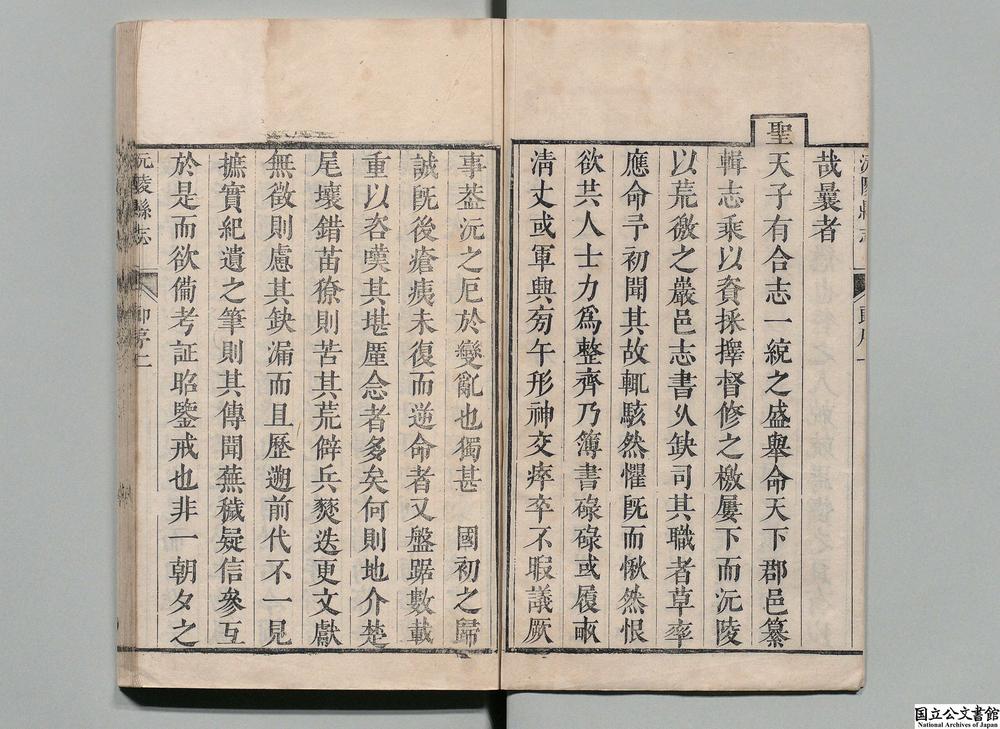 沅陵縣志
郎序一
哉曩者
聖
天子有合志一統之盛舉命天下郡邑纂
輯志乘以資採擇督修之檄屢下而沅陵
以荒徼之嚴邑志書久缺司其職者草率
應命予初聞其故輒駭然懼旣而愀然恨
欲共人士力爲整齊乃簿書碌碌或履畝
清丈或軍興旁午形神交瘁卒不暇議厥
事葢沅之厄於變亂也獨甚 國初之歸
誠旣後瘡痍未復而逆命者又盤踞數載
重以咨嘆其堪厪念者多矣何則地介楚
尾壤錯苗獠則苦其荒僻兵燹迭更文獻
無徵則慮其缺漏而且歷遡前代不一見
摭實紀遺之筆則其傳聞蕪穢疑信參互
於是而欲偹考証昭鑒戒也非一朝夕之
沅陵縣志
郎序二
国立公文書館
National Archives of Japan